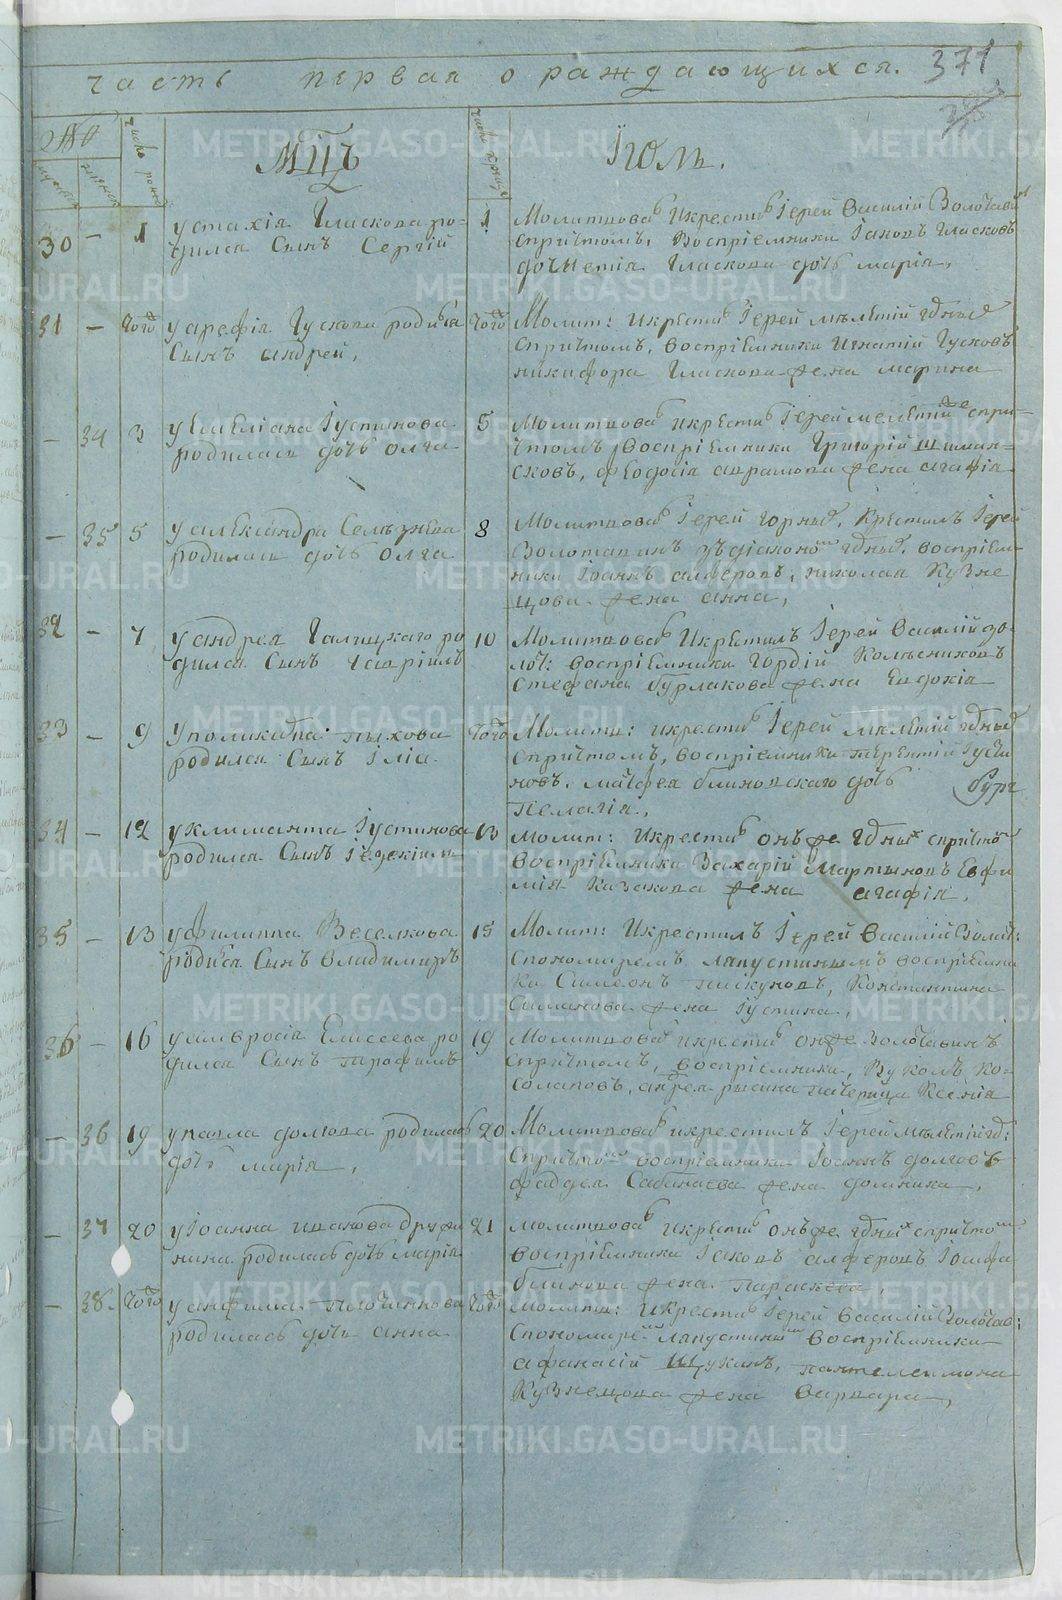 371
часть первая о раждающихся.
№
число рожд
число крещ
Мцъ Іюль.
30 — 1 у стахія Гласкова ро-
дился Сынъ Сергій
1 Молитвовалъ икрестилъ Іерей Василій Золотавинъ
спричтомъ, Воспріемники Іаковъ Гласковъ
Гласкова дочь марія,
31 — того уарефія Гускова родился
Сынъ андрей,
того Молит: икрестилъ Іерей мелетій
спричтомъ, воспріемники игнатій Гусковъ
никифора Гласкова жена марина
— 34 3 уемеліана Іустинова
родилась дочь олга
5 Молитвовалъ икрестилъ Іерей мелетій спри-
чтомъ воспріемники Григорій шиман-
сковъ, феодосія аврамова жена агафія
— 35 5 уалександра Селезнева
родилась дочь олга
8 Молитвовалъ Іерей горныхъ, Крестилъ Іерей
Золотавинъ воспріем-
ники Іоаннъ алферовъ, николая Кузне
цова жена анна,
32 — 7 уандрея Галицкаго ро
дился Сынъ гавріилъ
10 Молитвовалъ икрестилъ Іерей Василій зо-
лот: воспріемники гордій Колесниковъ
Стефана Бурлакова жена Евдокія
33 — 9 уполикарпа пыхова
родился Сынъ Ілія.
того Молитв: икрестилъ Іерей мелетій
спричтомъ, воспріемники терентій Іусти
новъ, матфея блиновскаго дочь
пелагія,
34 — 12 уклиманта Іустинова
родился Сынъ Іезекіиль
13 молит: икрестилъ онъже спричтомъ
воспріемники Захарій мартыновъ Евфи
мія Казакова жена агафія,
35 — 13 уфилиппа Веселкова
родился Сынъ владимиръ
15 Молит: икрестилъ Іерей Василій Золот:
спономаремъ лапустинымъ воспріемни
ки Симеонъ пискуновъ, Константина
Симанова жена Іустина,
36 — 16 уамвросія Елисеева ро
дился Сынъ трофимъ
19 Молитвовалъ икрестилъ онже Золотавинъ
спричтомъ, воспріемники, Вуколъ Ко-
солаповъ, андрея рысина Ксенія
— 36 19 упавла долюва родилась
дочь марія,
20 Молитвовалъ икрестилъ Іерей мелетій
спричтомъ воспріемники Іоаннъ долговъ
фаддея Сабанаева жена домника,
— 37 20 уІоанна иванова дружи
нина родилась дочь марія
21 молитвовалъ икрестилъ онъже спричтомъ
воспріемники Іаковъ алферовъ Іосифа
блинова жена параскева,
— 38. того уанфила плотникова
родилась дочь анна
того молитв: икрестилъ Іерей василій Золотав:
спономаремъ лапустинымъ воспріемники
афанасій щукинъ, пантелеимона
Кузнецова жена варвара,